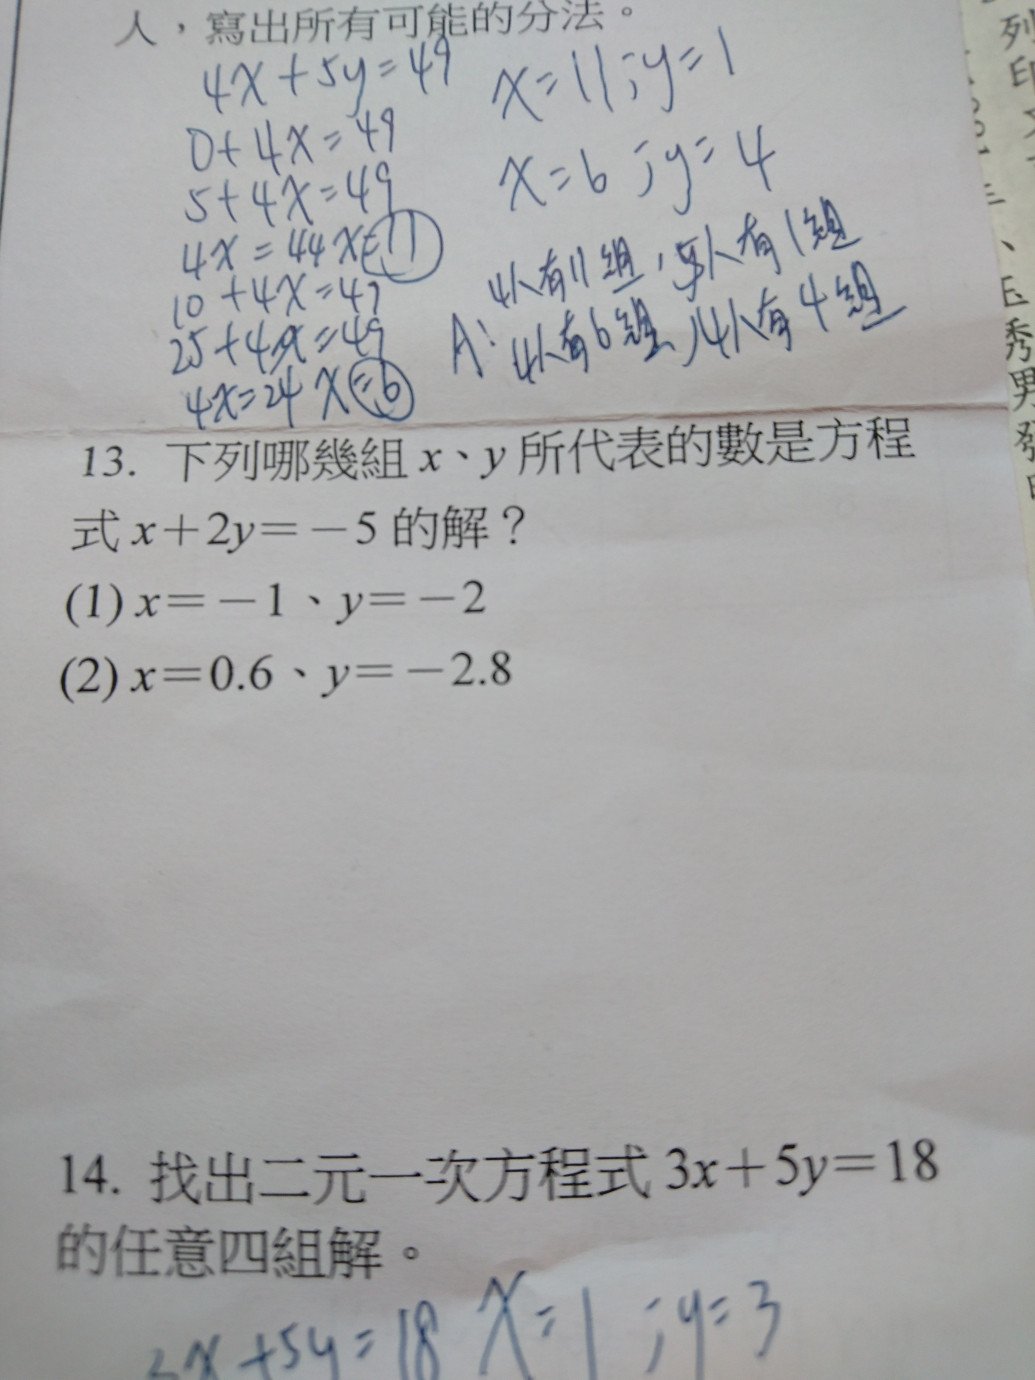 人，寫出所有可能的分法。
4x+5y=49
x=11;y=1
0+4x=49
5+4x=49
x=6;y=4
4x=44 x=11
10+4x=49
25+4x=49
4x=24 x=6
4人有11組，5人有1組
A:4人有6組,14人有4組
13. 下列哪幾組 x、y 所代表的數是方程
式 x+2y=-5 的解？
(1) x=-1、y=-2
(2) x=0.6、y=-2.8
14. 找出二元一次方程式 3x+5y=18
的任意四組解。
3x+5y=18 x=1;y=3
列
印
文
、
玉
秀
男